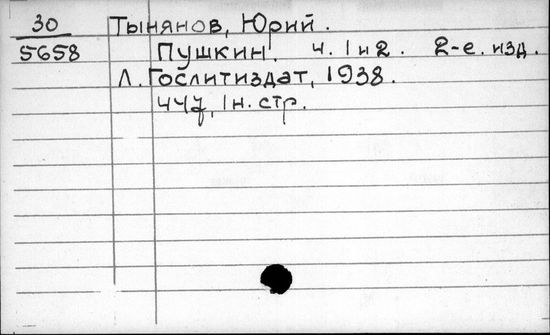 30 Тынянов, Юрий.
5658 Пушкин. ч. 1 и 2. 2-е. изд.
Л. Гослитиздат, 1938.
447, 1 н. стр.